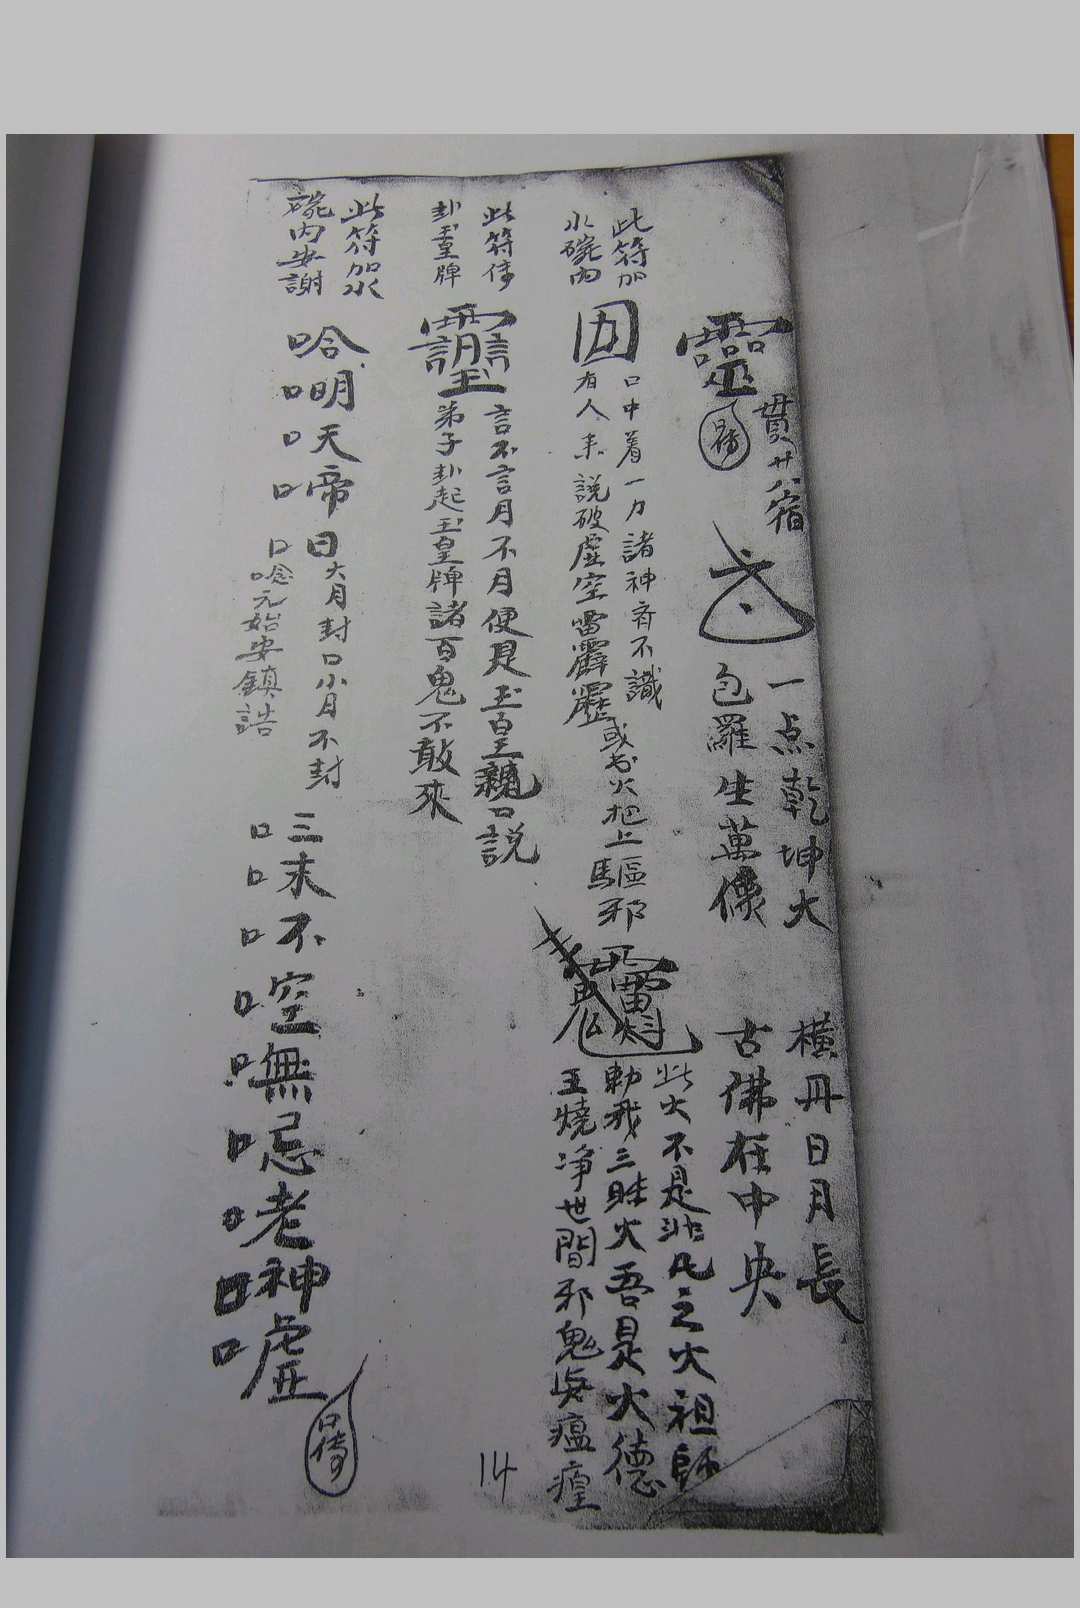 靈
貫廿八宿
一点乾坤大
橫丹日月長
包羅生萬像
古佛在中央
此符加
水碗內
口中着一力諸神齊不識
有人来説破虛空雷霹靂
或书火把上驅邪
此火不是非凡之火祖師
勅我三眛火吾是火德
王燒净世間邪鬼與瘟瘟
此符傳
卦玉皇牌
言不言月不月便是玉皇親口説
弟子卦起玉皇牌諸百鬼不敢來
此符加水
碗內安謝
哈明天帝日
大月封口小月不封
口唸元始安鎮誥
三末不啌嘸唿老神噓
14